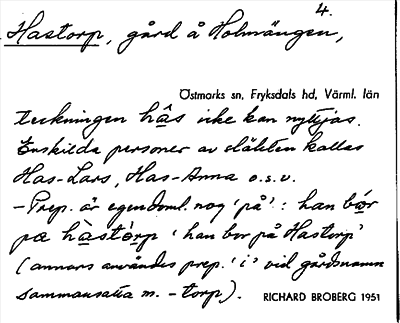 4.
Hastorp, gård å Holmängen,
Östmarks sn, Fryksdals hd, Värml. län
teckningen hâs icke kan nyttjas.
Enskilda personer av släkten kallas
Has-Lars, Has-Anna o.s.v.
- Prep. är egendoml. nog 'på': han bor
pæ hàstòrp 'han bor på Hastorp'
(annars användes prep. 'i' vid gårdsnamn
sammansatta m. -torp).
RICHARD BROBERG 1951